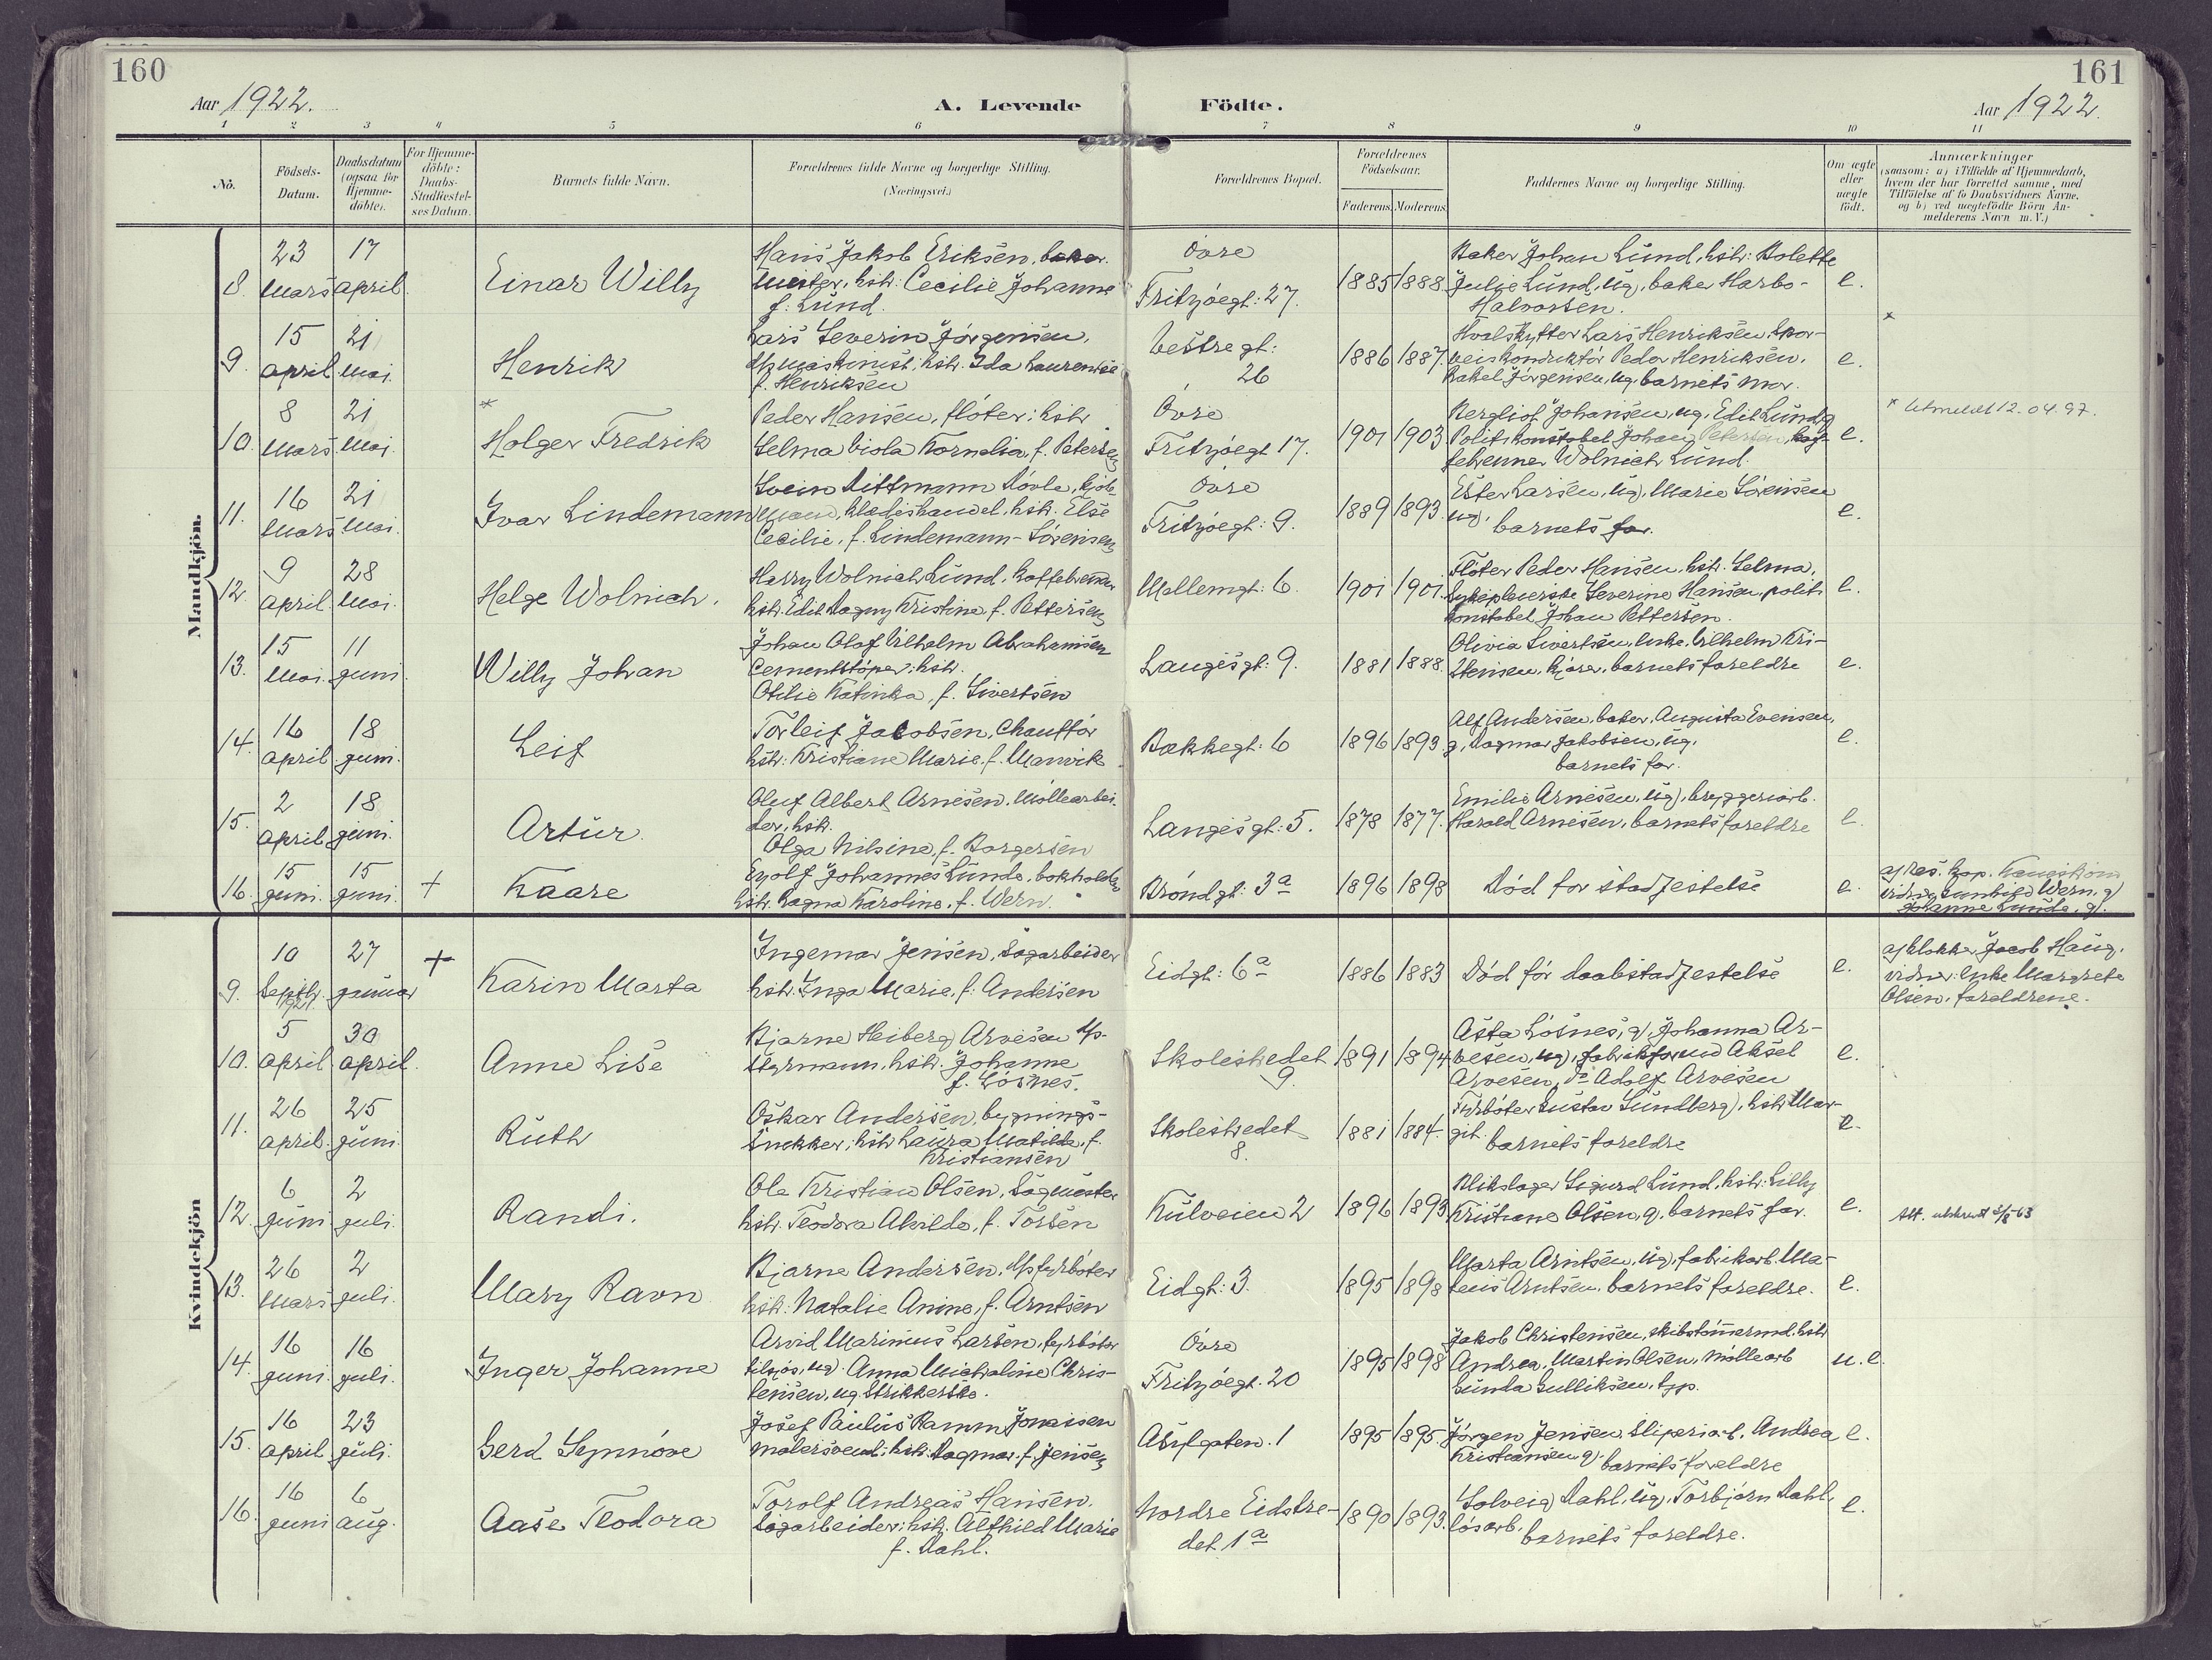 160
161
Aar 1922.
A. Levende Födte.
Aar 1922.
1 2 3 4 5 6 7 8 9 10 11
No.
Födsels-
Datum.
Daabsdatum
(ogsaa for
Hjemme-
döbte).
For Hjemme-
döbte:
Daabs-
Stadfæstel-
ses Datum.
Barnets fulde Navn.
Forældrenes fulde Navne og borgerlige Stilling.
(Næringsvei.)
Forældrenes Bopæl.
Forældrenes
Födselsaar.
Faderens.
Moderens.
Faddernes Navne og borgerlige Stilling.
Om ægte
eller
uægte
födt.
Anmærkninger
(saasom: a) i Tilfælde af Hjemmedaab,
hvem der har forrettet samme, med
Tilföielse af to Daabsvidners Navne.
og b) ved uægtefödte Börn An-
melderens Navn m. V.)
Mandkjön.
8.
23
mars
17
april.
Einar Willy
Hans Jakob Eriksen, baker-
mester, hstr: Cecilie Johanne
f. Lund.
övre
Fritzöegt: 27.
1885
1888.
Baker Johan Lund, hstr: Bolette
Julie Lund, ug, bake Harbo-
Halvorsen.
e.
9.
15
april
21
mai.
Henrik
Lars Severin Jörgensen,
d/p maskinist, hstr. Ida Laurentse
f. Henriksen
Vestregt:
26
1886
1887.
Hvalskytter Lars Henriksen, spor-
veiskonduktör Peder Henriksen,
Rakel Jörgensen, ug, barnets mor.
e.
*
10.
8
mars
21
mai.
*
Holger Fredrik
Peder Hansen, flöter: hstr
Selma Viola Kornelia, f. Petersen
Övre
Fritzöegt 17.
1901
1903
Bergliot Johansen, ug, Edit Lund, g
Politikonstabel Johan Petersen, kaf-
febrenner Wolnich Lund.
e.
* Utmeldt 12.04.97.
11.
16
mars
21
mai.
Ivar Lindemann
Svein Dittmann Dövle, kjöb-
mand, klædeshandel, hstr. Else
Cecilie, f. Lindemann-Sörensen
övre
Fritzöegt: 9.
1889
1893.
Ester Larsen, ug, Marie Sörensen
ug, barnets far.
e.
12.
9
april.
28
mai.
Helge Wolnich.
Harry Wolnich Lund, kaffebrenner
hstr. Edit Dagny Kristine, f. Pettersen
Mellemgt: 6.
1901
1901.
Flöter Peder Hansen, hstr. Selma,
sykepleierske Severine Hansen, politi
konstabel Johan Pettersen.
e.
13.
15
mai.
11
juni.
Willy Johan
Johan Olaf Vilhelm Abrahamsen
Cementstöper; hstr.
Otilie Katinka, f. Sivertsen
Langesgt: 9.
1881
1888.
Olivia Sivertsen, enke, Vilhelm Kri-
stensen, kjörer, barnets foreldre
e.
14.
16
april.
18
juni.
Leif
Torleif Jacobsen, Chaufför
hstr: Kristiane Marie, f. Manvik
Bækkegt: 6
1896
1893.
Alf Andersen, baker, Augusta Evensen,
g, Dagmar Jakobsen, ug,
barnets far.
e.
15.
2
april
18
juni.
Artur.
Oluf Albert Arnesen, Möllearbei-
der, hstr.
Olga Nilsine, f. Borgersen
Langesgt: 5.
1878
1877.
Emilie Arnesen, ug, bryggeriarb.
Harald Arnesen, barnets foreldre
e.
16.
15
juni.
15
juni.
+
Kaare
Eyolf Johannes Lunde, bokholder
hstr. Ragna Karoline, f. Wern.
Bröndgt: 3a
1896
1898
Död for stadfestelse
e.
a) Res. kap.
Wern, g)
Johanne Lunde, g).
Kvindekjön
9.
10
Septbr.
1921.
27
januar
+
Karin Marta
Ingemar Jensen, Sagarbeider
hstr. Inga Marie, f. Andersen
Eidgt: 6a
1886
1883
Död för daabstadfestelse
e.
a) klokker Jacob Haug,
vidner: Enke Margrete
Olsen, foreldrene.
10.
5
april
30
april.
Anne Lise
Bjarne Heiberg Arvesen d/p-
styrmann, hstr. Johanne
f. Lösnes.
Skolestredet
9.
1891
1894
Asta Lösnes, g, Johanna Ar-
vesen, ug, fabrikformd Aksel
Arvesen, do Adolf Arvesen
e.
11.
26
april.
25
juni
Ruth
Oskar Andersen, bygnings-
snekker; hstr Laura Matilde, f.
Kristiansen
Skolestredet
8.
1881
1884.
Fyrböter Gustav Sundberg, hstr Mar-
git. barnets foreldre
e.
12.
6
juni
2
juli.
Randi.
Ole Kristian Olsen, Sagmester
hstr. Teodora Alvilde, f. Torsen
Kulveien 2
1896
1893
Blikslager Sigurd Lund, hstr: Lilly
Kristiane Olsen, g, barnets far.
e.
Att. utskrevet 3/8-63
13.
26
mars
2
juli.
Mary Ravn
Bjarne Andersen, d/p fyrböter
hstr: Natalie Anine, f. Arntsen
Eidgt: 3.
1895
1898
Marta Arntsen, ug, fabrikarb. Ma-
teus Arntsen, barnets foreldre.
e.
14.
16
juni.
16
juli.
Inger Johanne
Arvid Marinius Larsen, fyrböter
tilsjös, ug. Anna Michaline Chris-
tensen, ug Strikkerske.
Övre
Fritzöegt. 20
1895
1898
Jakob Christensen, skibstömmermd. hstr
Andrea, Martin Olsen, möllearb
Gunda Gulliksen, typ.
u. e.
15.
16
april
23
juli.
Gerd Synnöve
Josef Paulus Ramm Jonassen
malersvend; hstr. Dagmar f. Jensen
Asylgaten. 1
1895
1895
Jörgen Jensen, Sliperiarb. Andrea
Kristiansen g. barnets foreldre
e.
16.
16
juni
6
aug.
Aase Teodora
Torolf Andreas Hansen.
Sagarbeider; hstr. Alfhild Marie
f. Dahl.
Nordre Eidstre-
det. 1a
1890
1893.
Solveig Dahl, ug, Torbjörn Dahl,
lösarb. barnets foreldre.
e.